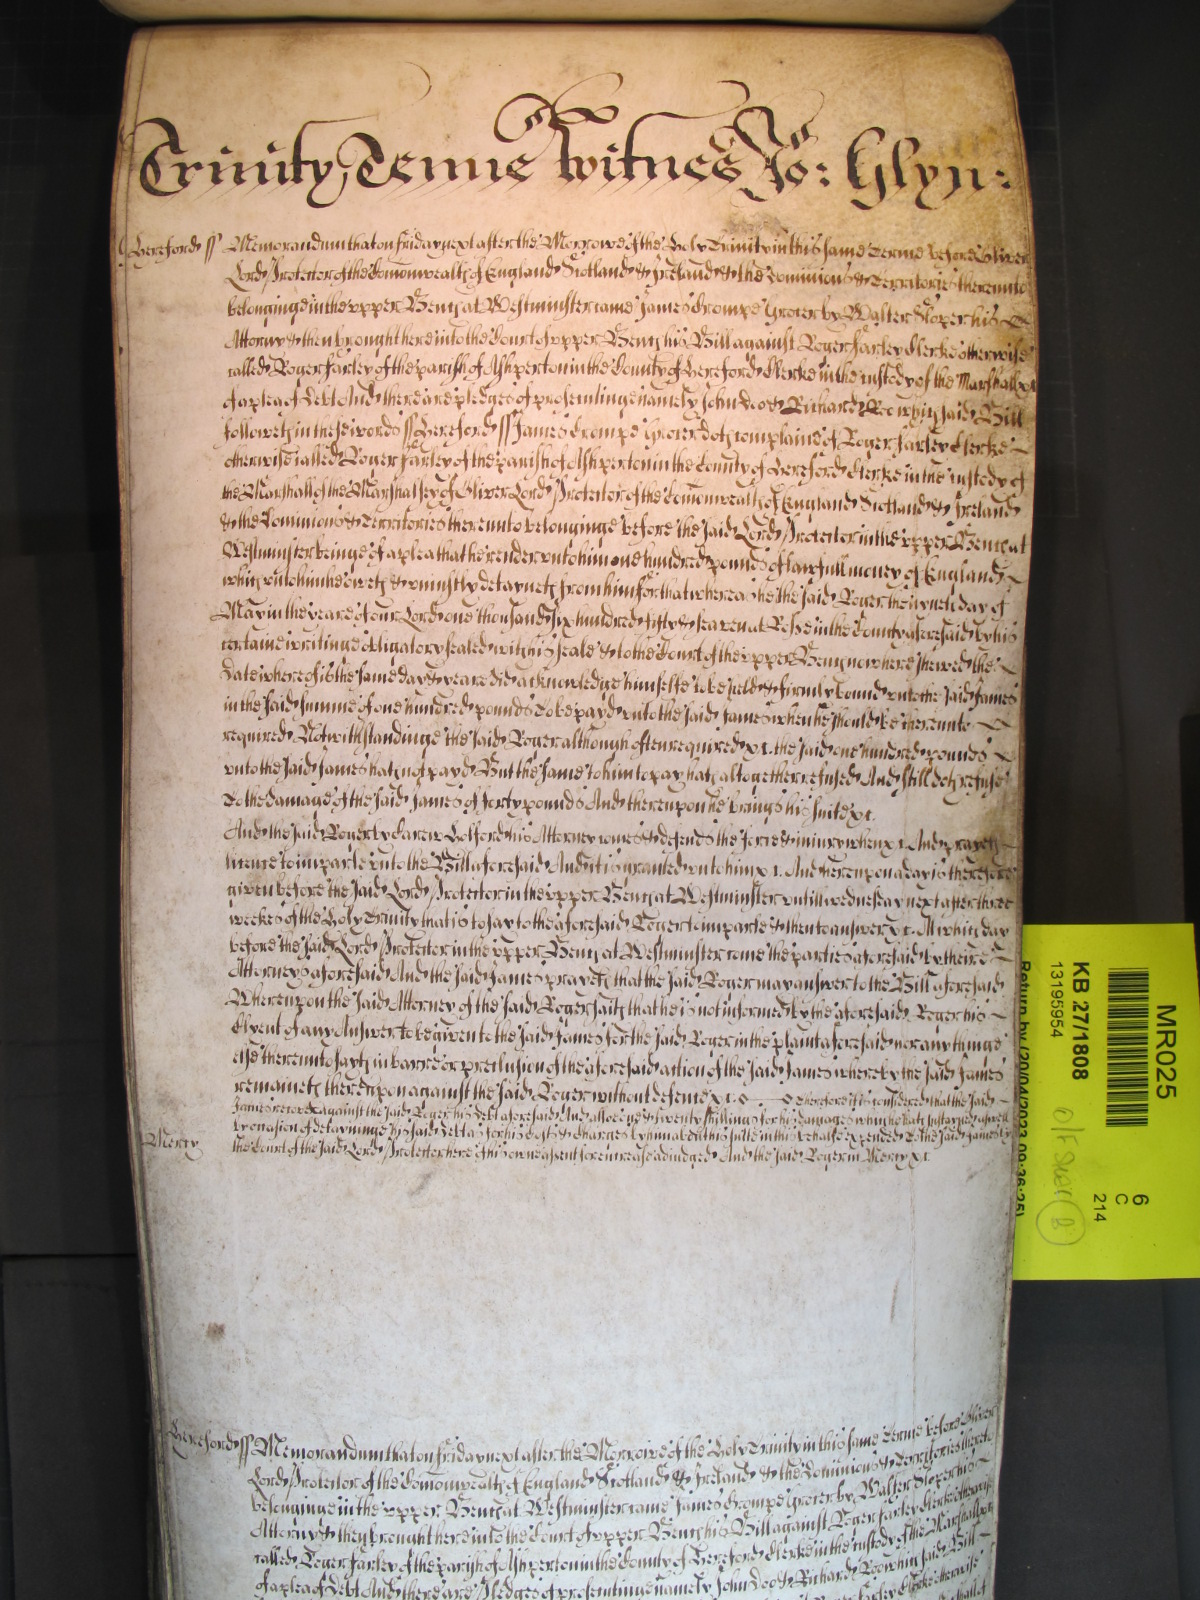 Trinity Terme Witnes Jo: Glyn:
Hereford ss Memorandum that on friday next after the Morrowe of the Holy Trinity in this same Terme before Oliver
Lord Protector of the Comonwealth of England Scotland & Ireland & the Dominions & Territories thereunto
belonginge in the vpper Bench at Westminster came James Crompe Grocer by Walter Sloper his
Attorny & then brought here into the Court of vpper Bench his Bill against Roger Farley Clerke otherwise
called Roger Farley of the parish of Ashperton in the County of Hereford Clerke in the custody of the Marshall xc
of a plea of Debt And there are pledges of prosecutinge namely John Doo & Richard Roo which said Bill
followeth in these words ss Hereford ss James Crompe Grocer doth complaine of Roger Farley Clerke
otherwise called Roger Farley of the parish of Ashperton in the County of Hereford Clerke in the custody of
the Marshall of the Marshalsey of Oliver Lord Protector of the Comonwealth of England Scotland & Ireland
& the Dominions & Territories thereunto belonginge before the said Lord Protector in the vpper Bench at
Westminster beinge of a plea that he render vnto him one hundred pounds of lawfull money of England
which vnto him he oweth & vniustly detayneth from him for that whereas he the said Roger the day of
May in the yeare of our Lord one thousand six hundred fifty & seaven at Rosse in the County aforesaid by his
certaine writinge obligatory sealed with his seale & to the Court of the vpper Bench now here shewed the
date whereof is the same day & yeare did acknowledge himselfe to be held & firmly bound vnto the said James
in the said summe of one hundred pounds To be payd vnto the said James when he should be thereunto
required Notwithstandinge the said Roger although often required xc. the said one hundred pounds
vnto the said James hath not payd But the same to him to pay hath altogether refused And still doth refuse
To the damage of the said James of forty pounds And thereupon he brings his suite xc.
And the said Roger by Carew his Attorney comes & defends the force & iniury when xc. And prayeth
licence to imparle vnto the Bill aforesaid And it is granted vnto him xc. And hereupon a day is therefore
given before the said Lord Protector in the vpper Bench at Westminster vntill wednesday next after three
weekes of the Holy Trinity that is to say to the aforesaid Roger to imparle & then to answer xc. At which day
before the said Lord Protector in the vpper Bench at Westminster come the parties aforesaid by theire
Attorneys aforesaid And the said James prayeth that the said Roger may answer to the Bill aforesaid
Whereupon the said Attorney of the said Roger saith that he is not informed by the aforesaid Roger his
Clyent of any Answer to be given to the said James for the said Roger in the plaint aforesaid nor any thinge
else thereunto sayth in barre or preclusion of the aforesaid action of the said James whereby the said James
remaineth thereupon against the said Roger without defence xc. Therefore it is considered that the said
James recover against the said Roger his debt aforesaid And alsoe & twenty shillings for his damages which he hath sustayned aswell
by occasion of detayninge the said debt as for his costs & charges by him about his suite in this behalfe expended To the said James by
the Court of the said Lord Protector here of his owne assent adiudged And the said Roger in Mercy xc.
Mercy
Hereford ss Memorandum that on friday next after the Morrowe of the Holy Trinity in this same Terme before Oliver
Lord Protector of the Comonwealth of England Scotland & Ireland & the Dominions & Territories thereto
belonginge in the vpper Bench at Westminster came James Crompe Grocer by Walter Sloper his
Attorny & then brought here into the Court of vpper Bench his Bill against Roger Farley Clerke otherwise
called Roger Farley of the parish of Ashperton in the County of Hereford Clerke in the custody of the Marshall xc
of a plea of Debt And there are Pledges of prosecutinge namely John Doo & Richard Roo which said Bill
MR025
KB 27/1808
13195954
Return by (20/04/2023 09:36:25)
6
C
214